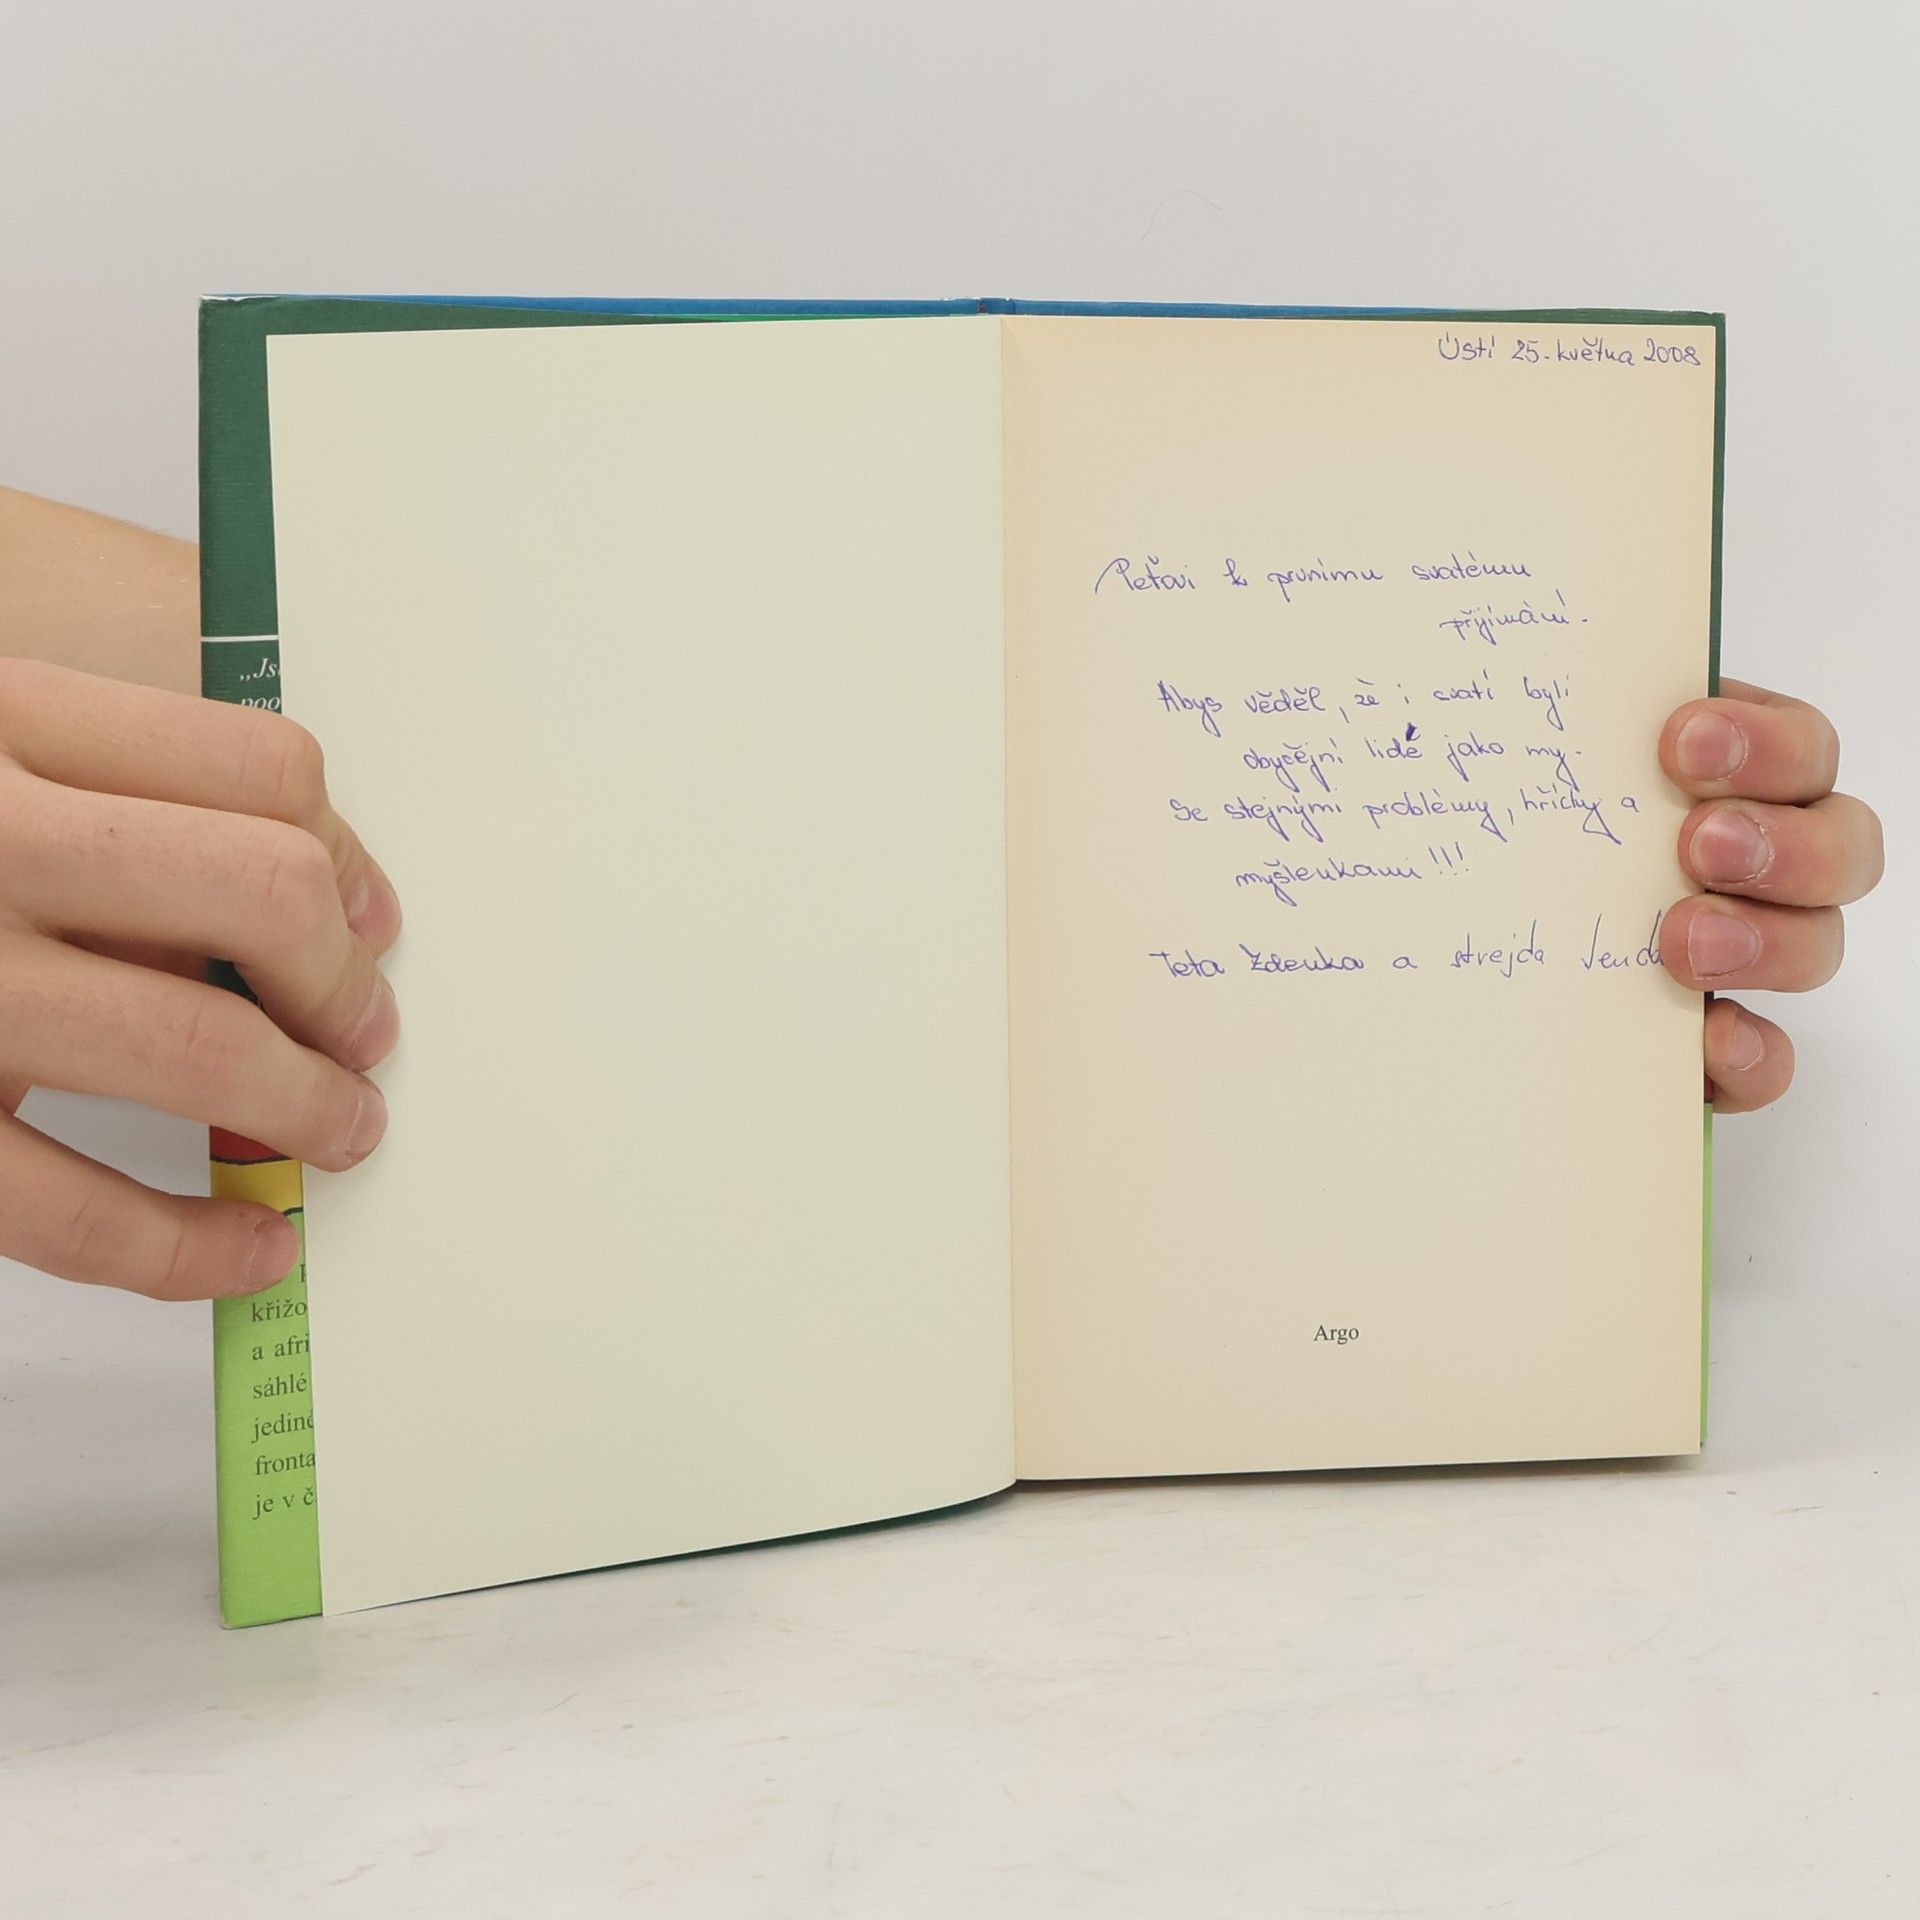 Ústí 25. května 2008
Peťovi k prvnímu svatému
přijímání.
Abys věděl, že i svatí byli
obyčejní lidé jako my.
Se stejnými problémy, hříchy a
myšlenkami!!!
Teta Zdenka a strejda Venda
Argo
„Js
poo
křižo
a afri
sáhlé
jedine
fronta
je v č